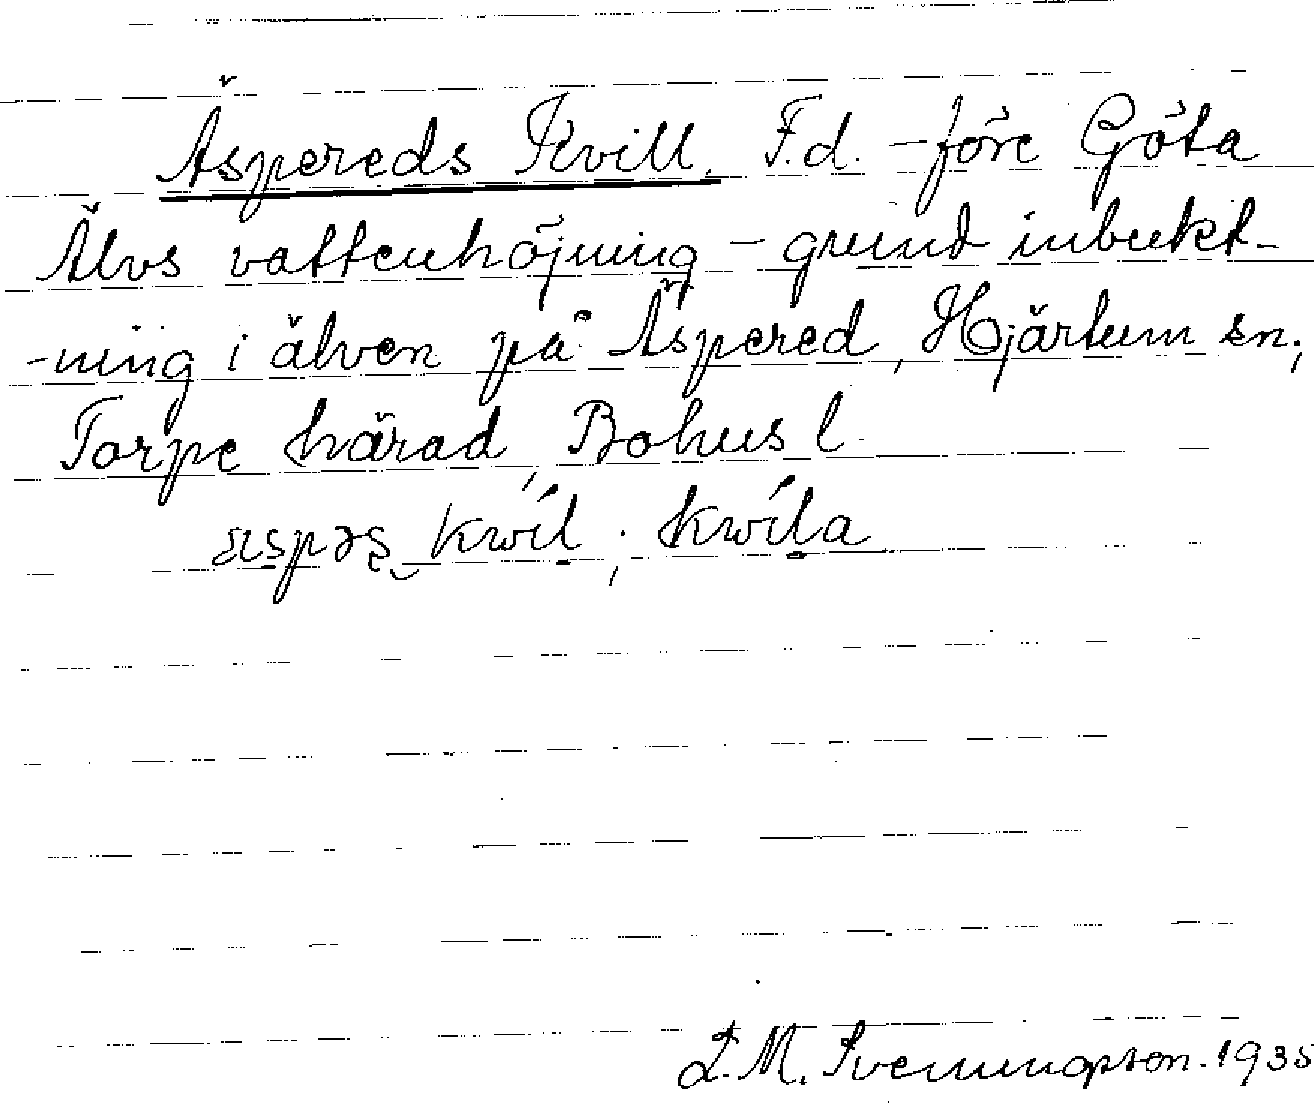 Äspereds Kvill. F.d. - före Göta
Älvs vattenhöjning - grund inbukt-
-ning i älven på Äspered, Hjärtum sn;
Torpe härad, Bohus l.
kwíl ; kwíla
L. M. Svenungsson. 1935